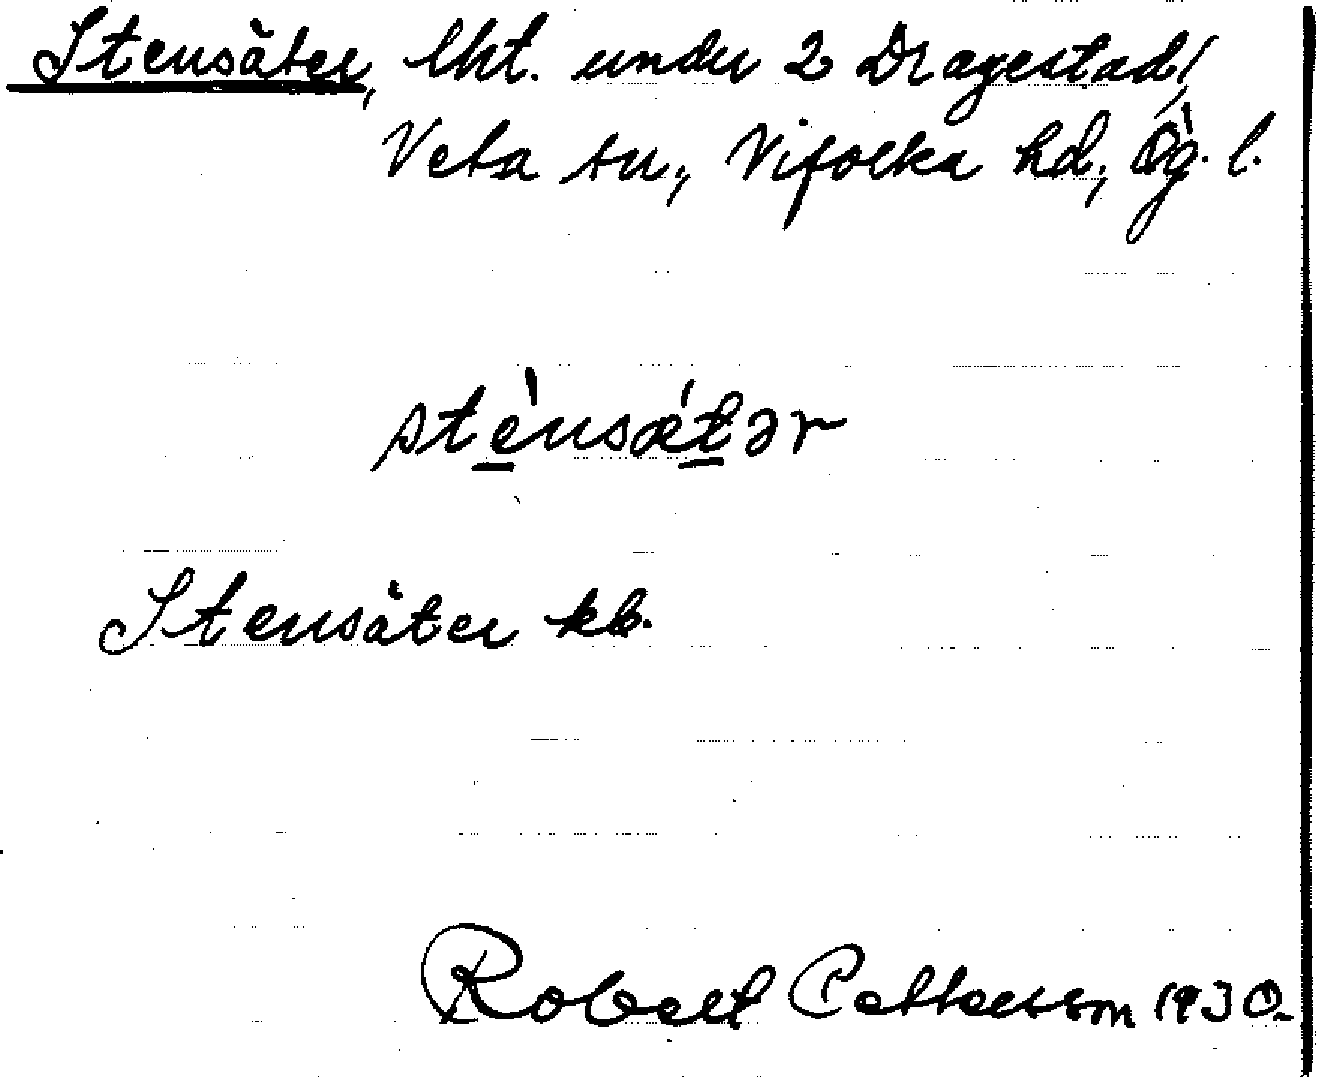 Stensäter, lht. under 2 Dragestad,
Veta sn., Vifolka hd., Ög. l.
stènsǽtər
Stensäter kb.
Robert Pettersson 1930.